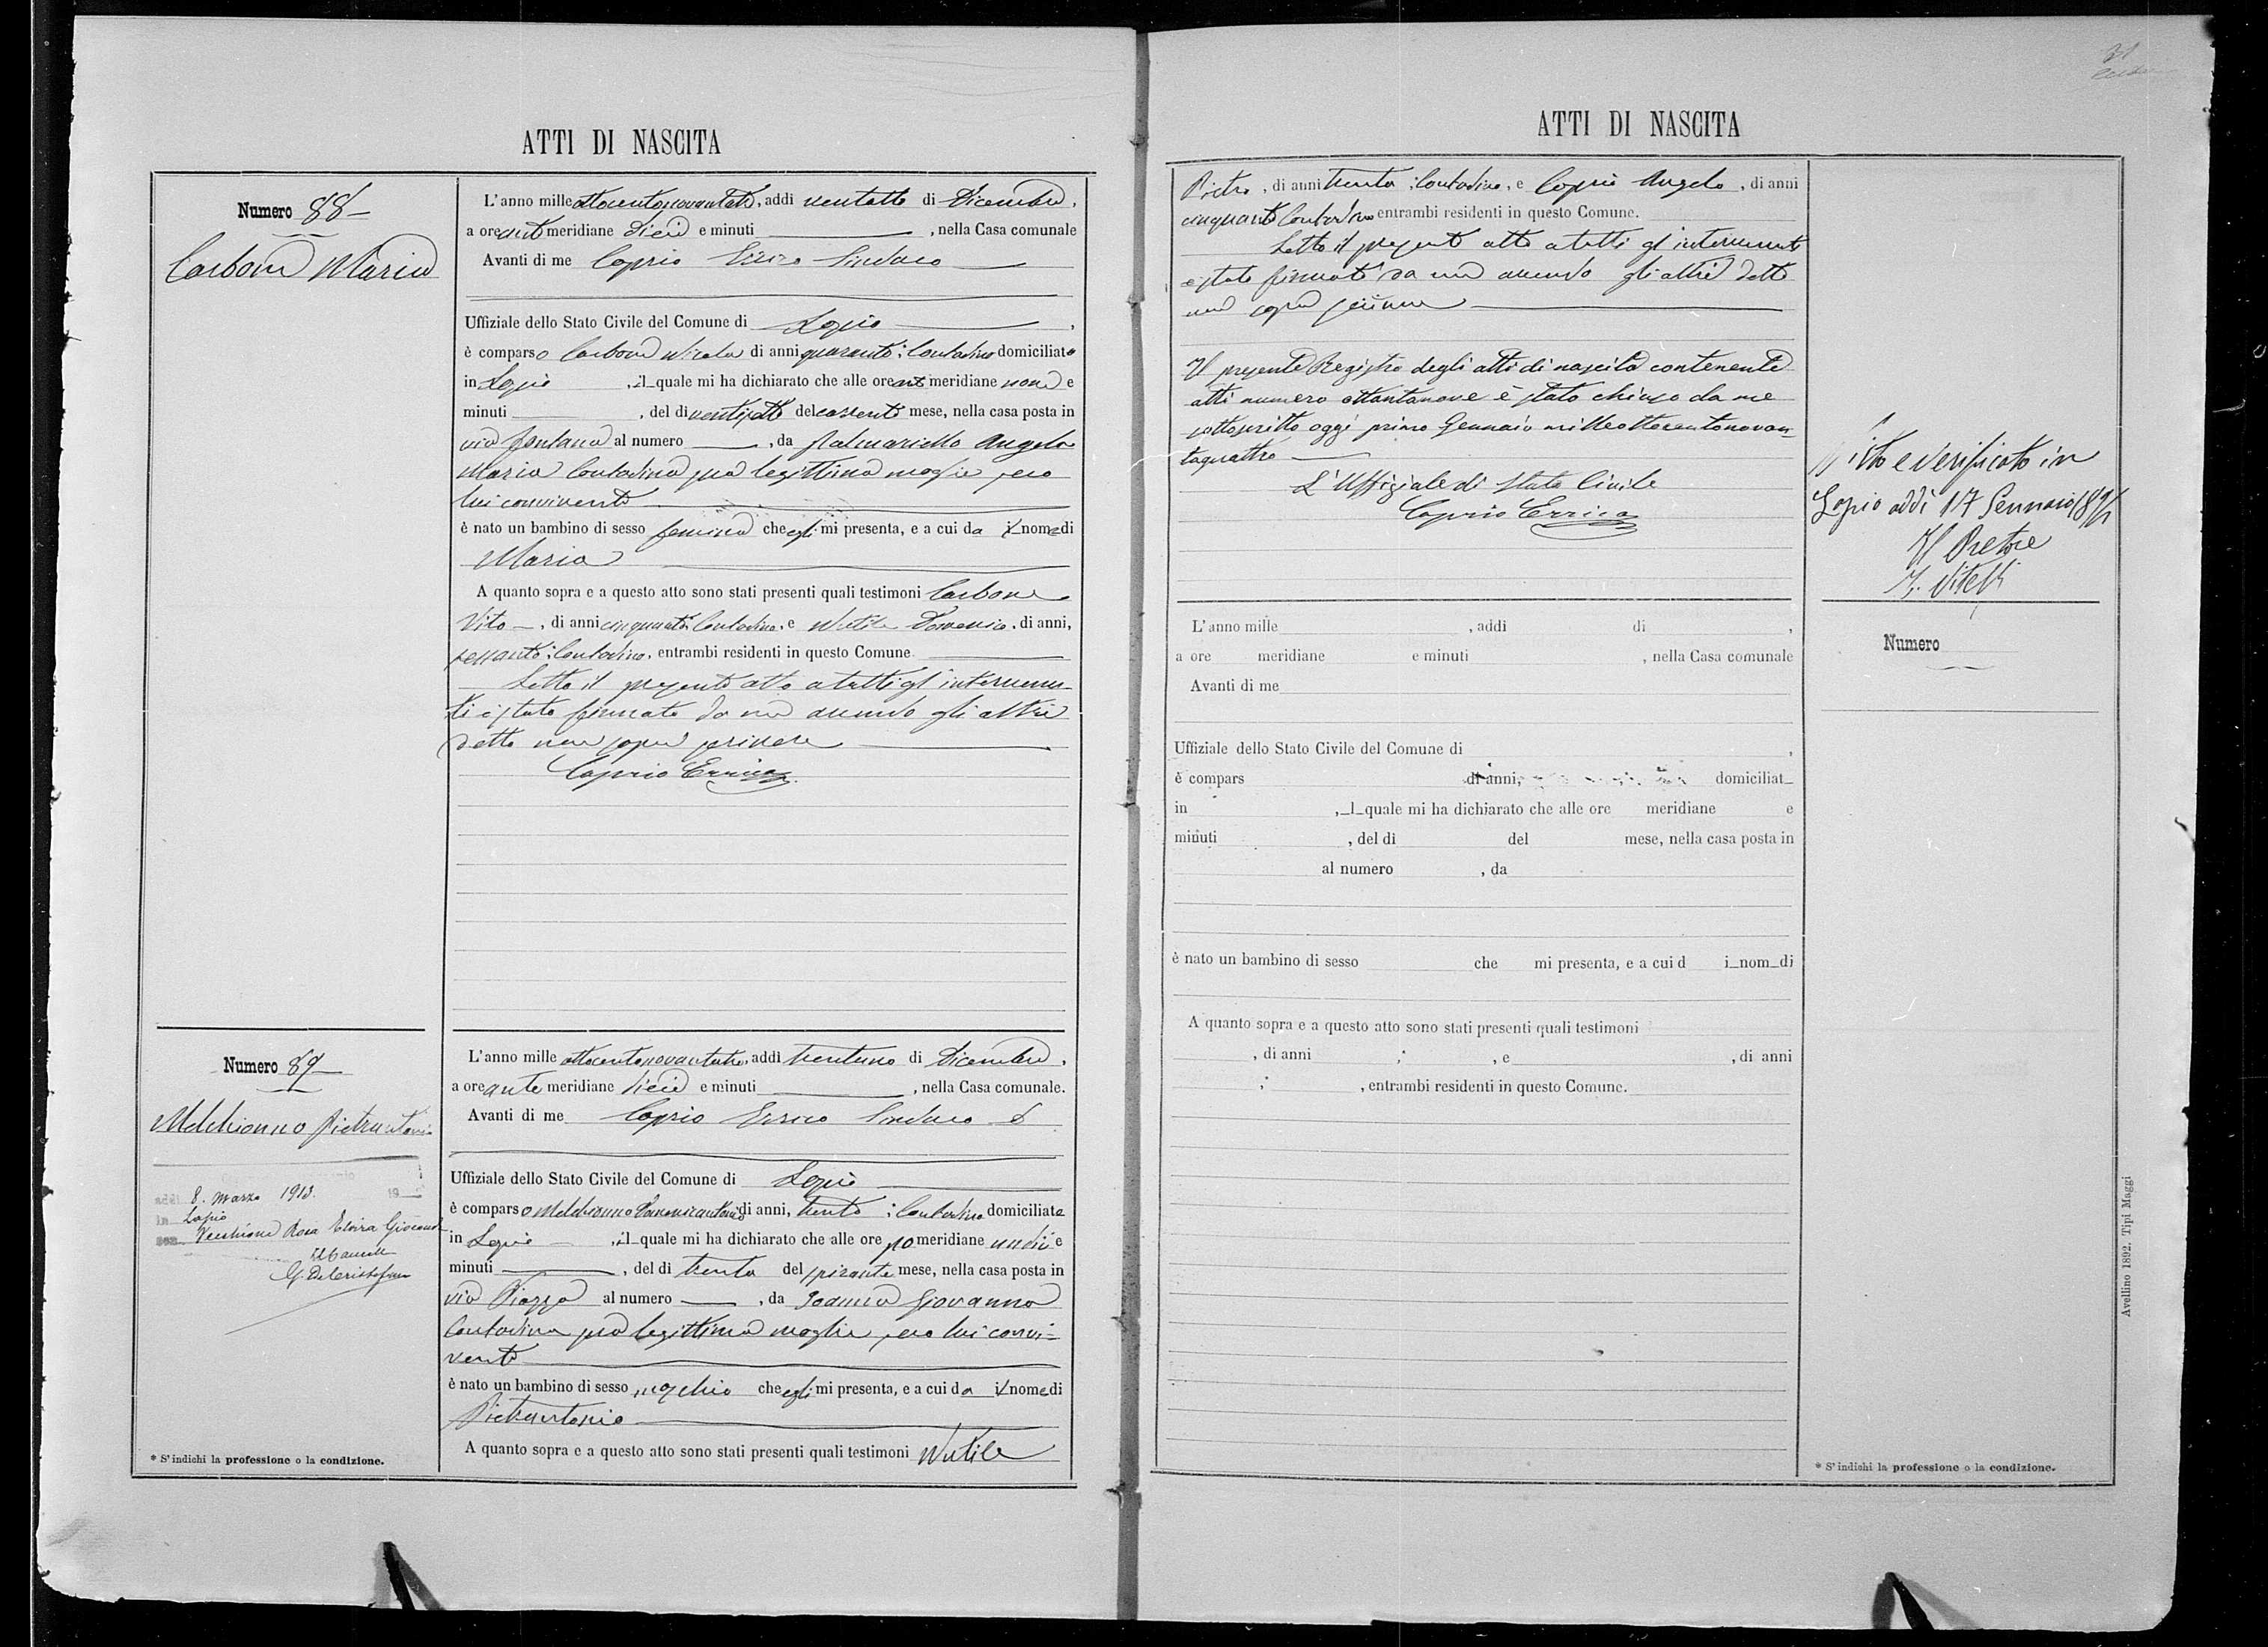 ATTI DI NASCITA
Numero 88
Carbone Maria
L'anno mille ottocentonovantatre, addì ventotto di Dicembre,
a ore ant meridiane dieci e minuti , nella Casa comunale
Avanti di me Caprio Errico Sindaco
Uffiziale dello Stato Civile del Comune di Lapio,
è comparso Carbone Nicola di anni quaranta; Contadino domiciliato
in Lapio, il quale mi ha dichiarato che alle ore ant meridiane nove e
minuti , del dì del corrente mese, nella casa posta in
via Fontana al numero , da Palmariello Angela
Maria Contadina sua legittima moglie, seco
lui convivente
è nato un bambino di sesso femina che egli mi presenta, e a cui da il nome di
Maria
A quanto sopra e a questo atto sono stati presenti quali testimoni Carbone
Vito, di anni cinquanta Contadino, e Nutile Domenico, di anni,
sessanta; Contadino, entrambi residenti in questo Comune
Letto il presente atto a tutti gl'intervenu-
ti è stato firmato da me avendo gli altri
detto non saper scrivere
Caprio Errico
Numero 89
Melchionno Pietrantonio
addì 8. Marzo 1913.
in Lapio
con Vecchione Rosa Elvira
G. DeCristofaro
L'anno mille ottocentonovantatre, addì trentuno di Dicembre,
a ore ante meridiane dieci e minuti , nella Casa comunale.
Avanti di me Caprio Errico Sindaco
Uffiziale dello Stato Civile del Comune di Lapio
è comparso Melchionno Domenicantonio di anni, trenta; Contadino domiciliato
in Lapio, il quale mi ha dichiarato che alle ore po meridiane undici e
minuti , del dì trenta del spirante mese, nella casa posta in
via Piazza al numero , da Giovanna
Contadina sua legittima moglie, seco lui convi-
vente
è nato un bambino di sesso maschio che egli mi presenta, e a cui da il nome di
Pietrantonio
A quanto sopra e a questo atto sono stati presenti quali testimoni Nutile
* S'indichi la professione o la condizione.
31
ATTI DI NASCITA
Pietro, di anni trenta; Contadino, e Caprio Angelo, di anni
cinquanta Contadino entrambi residenti in questo Comune.
Letto il presente atto a tutti gl'intervenuti
è stato firmato da me avendo gli altri detto
non saper scrivere
Il presente Registro degli atti di nascita contenente
atti numero ottantanove è stato chiuso da me
sottoscritto oggi primo Gennaio milleottocentonovan-
taquattro
L'Uffiziale di Stato Civile
Caprio Errico
Visto e verificato in
Lapio addì 17 Gennaio 1894
Il Pretore
Vitelli
Numero
L'anno mille , addì di ,
a ore meridiane e minuti , nella Casa comunale
Avanti di me
Uffiziale dello Stato Civile del Comune di ,
è compars di anni, domiciliat
in , l quale mi ha dichiarato che alle ore meridiane e
minuti , del dì del mese, nella casa posta in
al numero , da
è nato un bambino di sesso che mi presenta, e a cui d i nom di
A quanto sopra e a questo atto sono stati presenti quali testimoni
, di anni ; , e , di anni
; , entrambi residenti in questo Comune.
* S'indichi la professione o la condizione.
Avellino 1892. Tipi Maggi